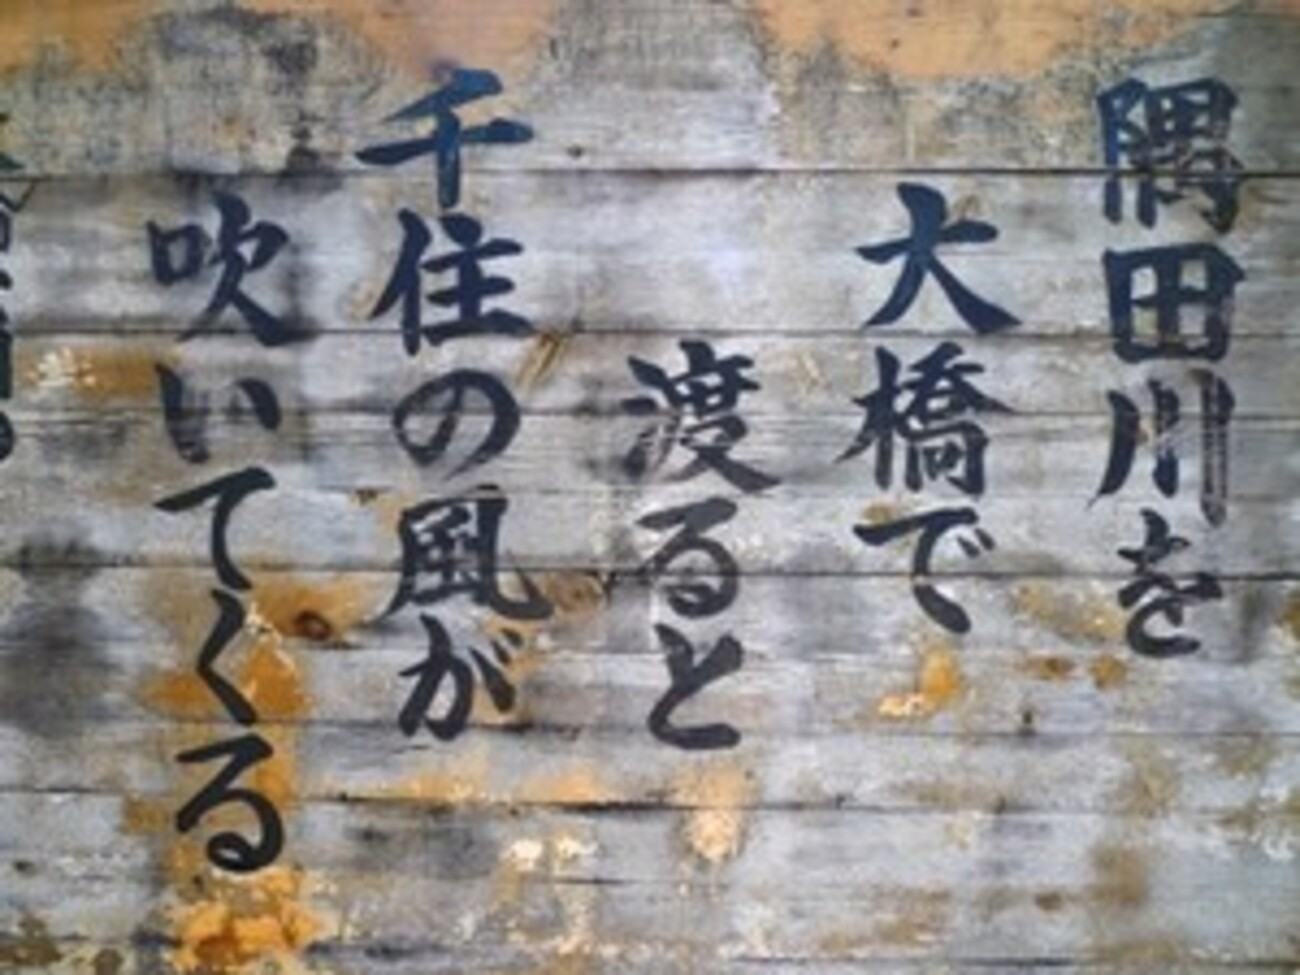 隅田川を
大橋で
渡ると
千住の風が
吹いてくる